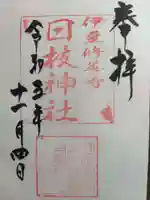 奉拝
伊豆修善寺
日枝神社
令和五年
十一月四日